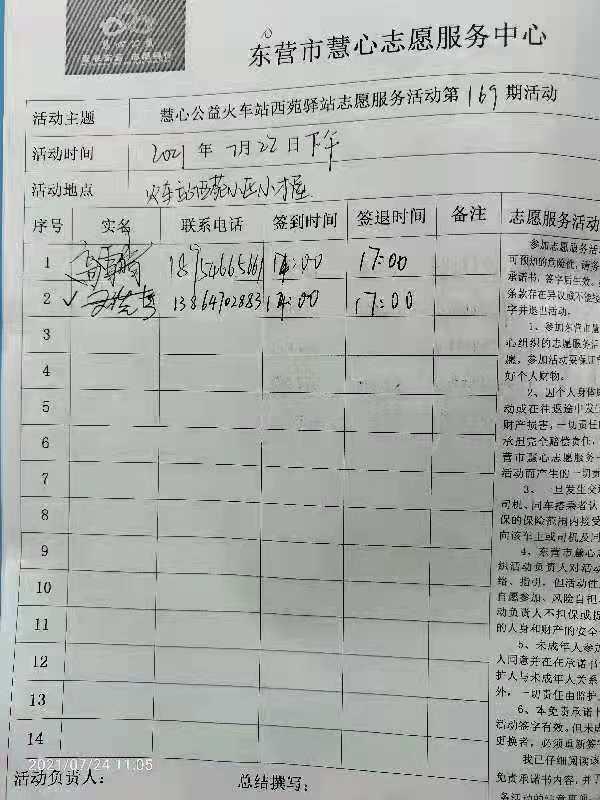 东营市慧心志愿服务中心
活动主题 慧心公益火车站西苑驿站志愿服务活动第169期活动
活动时间 2021年7月22日下午
活动地点 火车站西苑小区小木屋
序号 实名 联系电话 签到时间 签退时间 备注 志愿服务活动
1 14:00 17:00
2 13864702883 14:00 17:00
3
4
5
6
7
8
9
10
11
12
13
14
活动负责人： 总结撰写：
参加志愿服务活
可预知的危险性，请务
承诺书，签字后生效，
条款存在异议或不能接
字并退出活动。
1、参加东营市慧
心组织的志愿服务活
愿，参加活动要保证
好个人财物。
2、因个人身体
动或在往返途中发生
财产损害，一切责任
承担完全赔偿责任，
营市慧心志愿服务
活动而产生的一切责
3、一旦发生交通
司机、同车搭乘者认
保的保险范围内接受
向该车主或司机及同
4、东营市慧心志
织活动负责人对活动
络、指明，但活动性
自愿参加、风险自担
动负责人不担保或
的人身和财产的安全
5、未成年人参加
人同意并在在承诺书
护人与未成年人关系
外，一切责任由监护
6、本免责承诺书
活动签字有效，但未成
更换者，必须重新签
我已仔细阅读
免责承诺书内容，并
2021/07/24 11:05